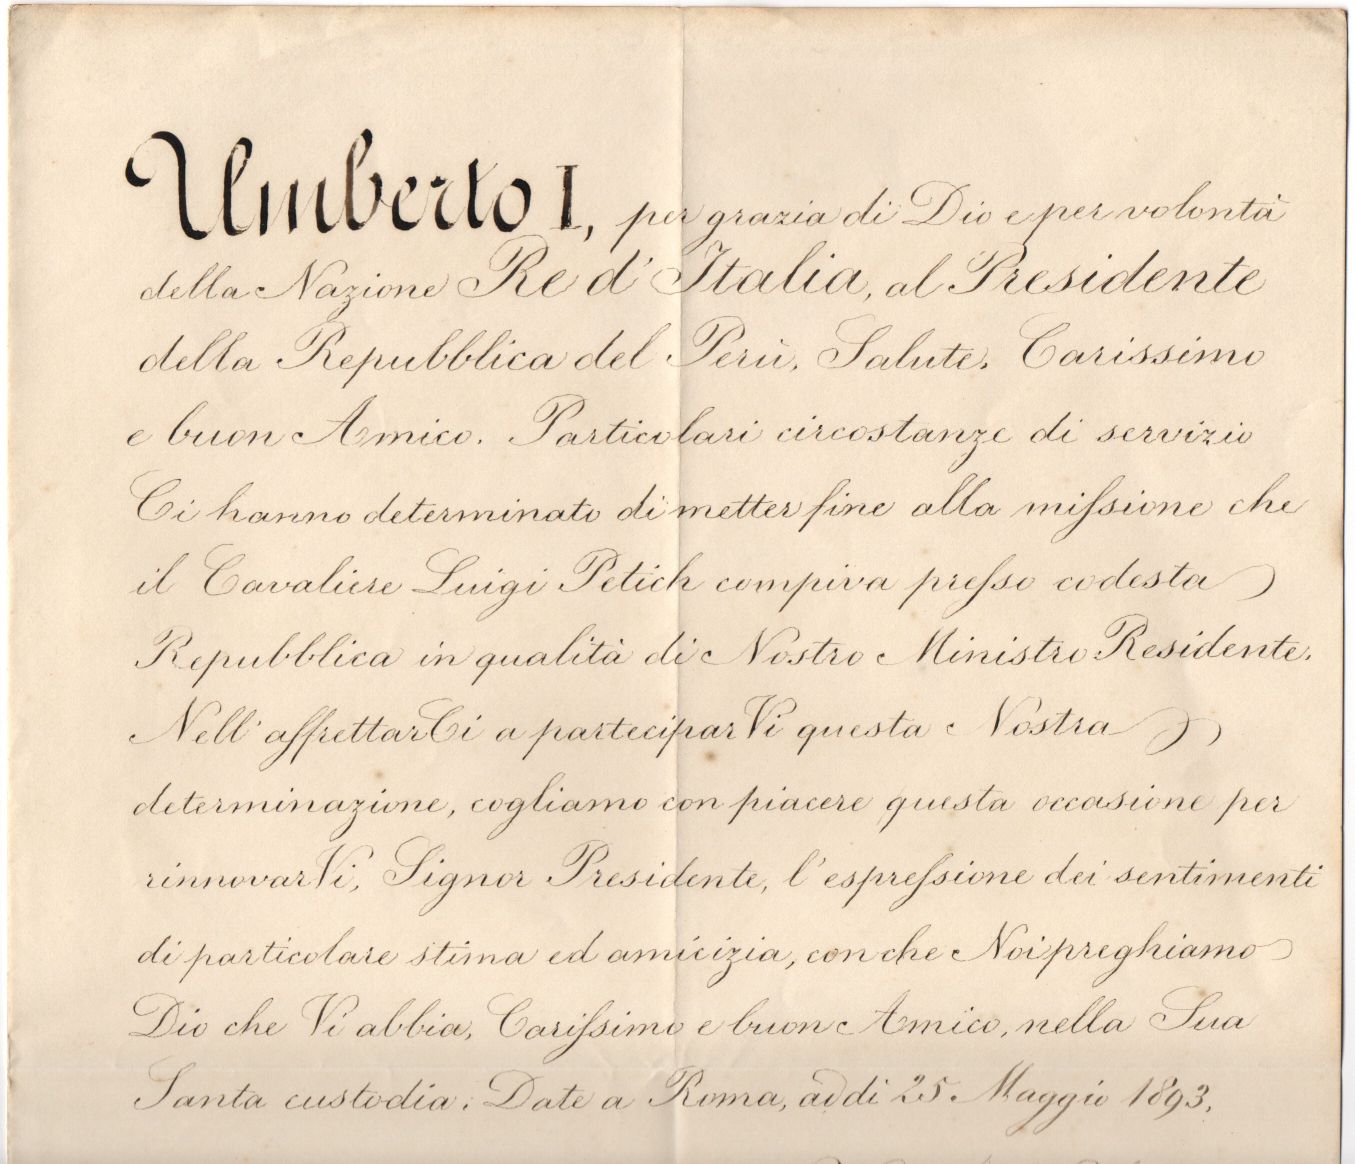 Umberto I, per grazia di Dio e per volontà
della Nazione Re d'Italia, al Presidente
della Repubblica del Perù, Salute. Carissimo
e buon Amico. Particolari circostanze di servizio
Ci hanno determinato di metter fine alla miſsione che
il Cavaliere Luigi Petich compiva preſso codesta
Repubblica in qualità di Nostro Ministro Residente.
Nell'affrettarCi a parteciparVi questa Nostra
determinazione, cogliamo con piacere questa occasione per
rinnovarVi, Signor Presidente, l'espreſsione dei sentimenti
di particolare stima ed amicizia, con che Noi preghiamo
Dio che Vi abbia, Cariſsimo e buon Amico, nella Sua
Santa custodia. Date a Roma, addi 25 Maggio 1893.